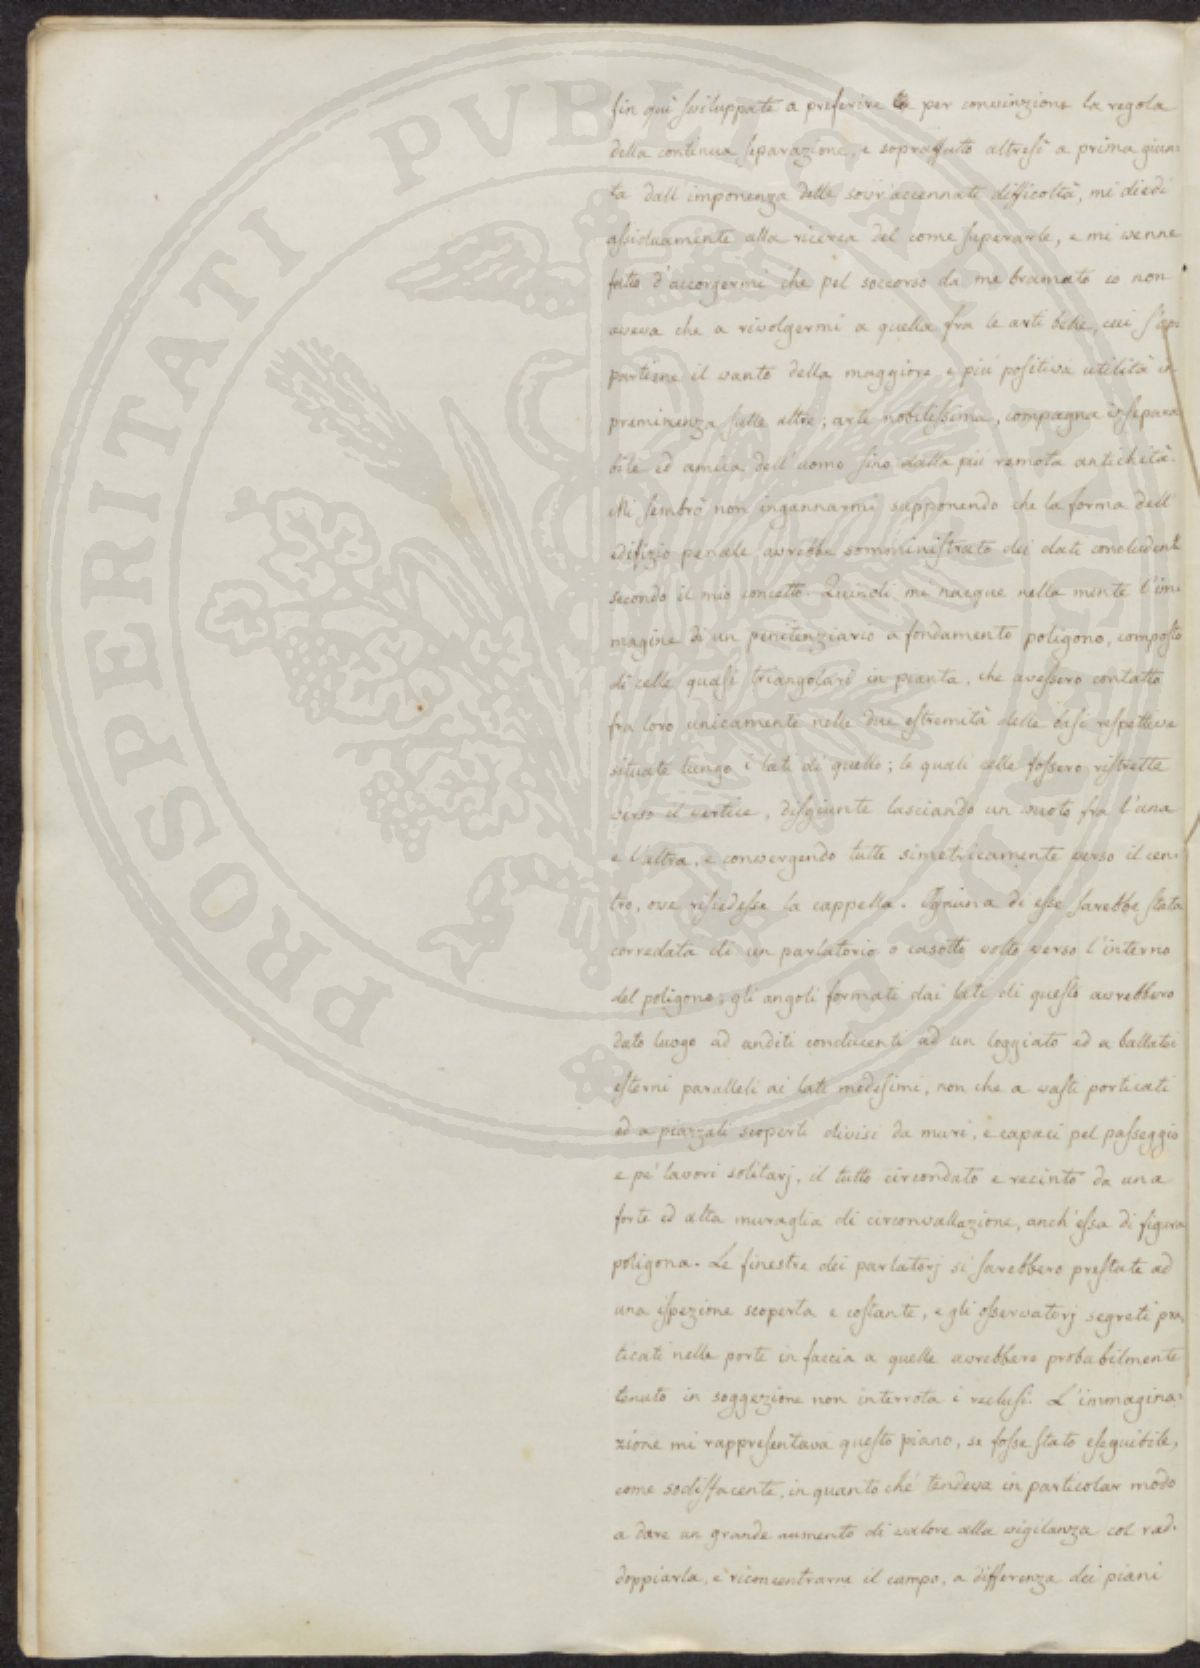 fin quì sviluppate a preferire per convinzione la regola
della continua separazione, e sopraffatto altresì a prima giun=
ta dall'imponenza delle sovr'accennate difficoltà, mi diedi
assiduamente alla ricerca del come superarle, e mi venne
fatto d'accorgermi che pel soccorso da me bramato io non
aveva che a rivolgermi a quella fra le arti belle, cui s'ap=
partiene il vanto della maggiore, e più positiva utilità in
preminenza sulle altre; arte nobilissima, compagna insepara
bile ed amica dell'uomo fino dalla più remota antichità.
Mi sembrò non ingannarmi supponendo che la forma dell'
edifizio penale avrebbe somministrato dei dati concludenti
secondo il mio concetto. Quindi mi nacque nella mente l'im=
magine di un penitenziario a fondamento poligono, composto
di celle quasi triangolari in pianta, che avessero contatto
fra loro unicamente nelle due estremità delle basi respettive
situate lungo i lati di quello; le quali celle fossero ristrette
verso il vertice, disgiunte lasciando un vuoto fra l'una
e l'altra, e convergendo tutte simetricamente verso il cen=
tro, ove risiedesse la cappella. Ognuna di esse sarebbe stata
corredata di un parlatorio o casotto volto verso l'interno
del poligono; gli angoli formati dai lati di questo avrebbero
dato luogo ad anditi conducenti ad un loggiato ed a ballatoi
esterni paralleli ai lati medesimi, non che a vasti porticati
ed a piazzali scoperti divisi da muri, e capaci pel passeggio
e pe' lavori solitarj, il tutto circondato e recinto da una
forte ed alta muraglia di circonvallazione, anch'essa di figura
poligona. Le finestre dei parlatorj si sarebbero prestate ad
una ispezione scoperta e costante, e gli osservatorj segreti pra=
ticati nelle porte in faccia a quelle avrebbero probabilmente
tenuto in soggezione non interrota i reclusi. L'immagina=
zione mi rappresentava questo piano, se fosse stato eseguibile,
come sodisfacente, in quanto chè tendeva in particolar modo
a dare un grande aumento di valore alla vigilanza col rad=
doppiarla, e riconcentrarne il campo, a differenza dei piani
PROSPERITATI PVBLICAE